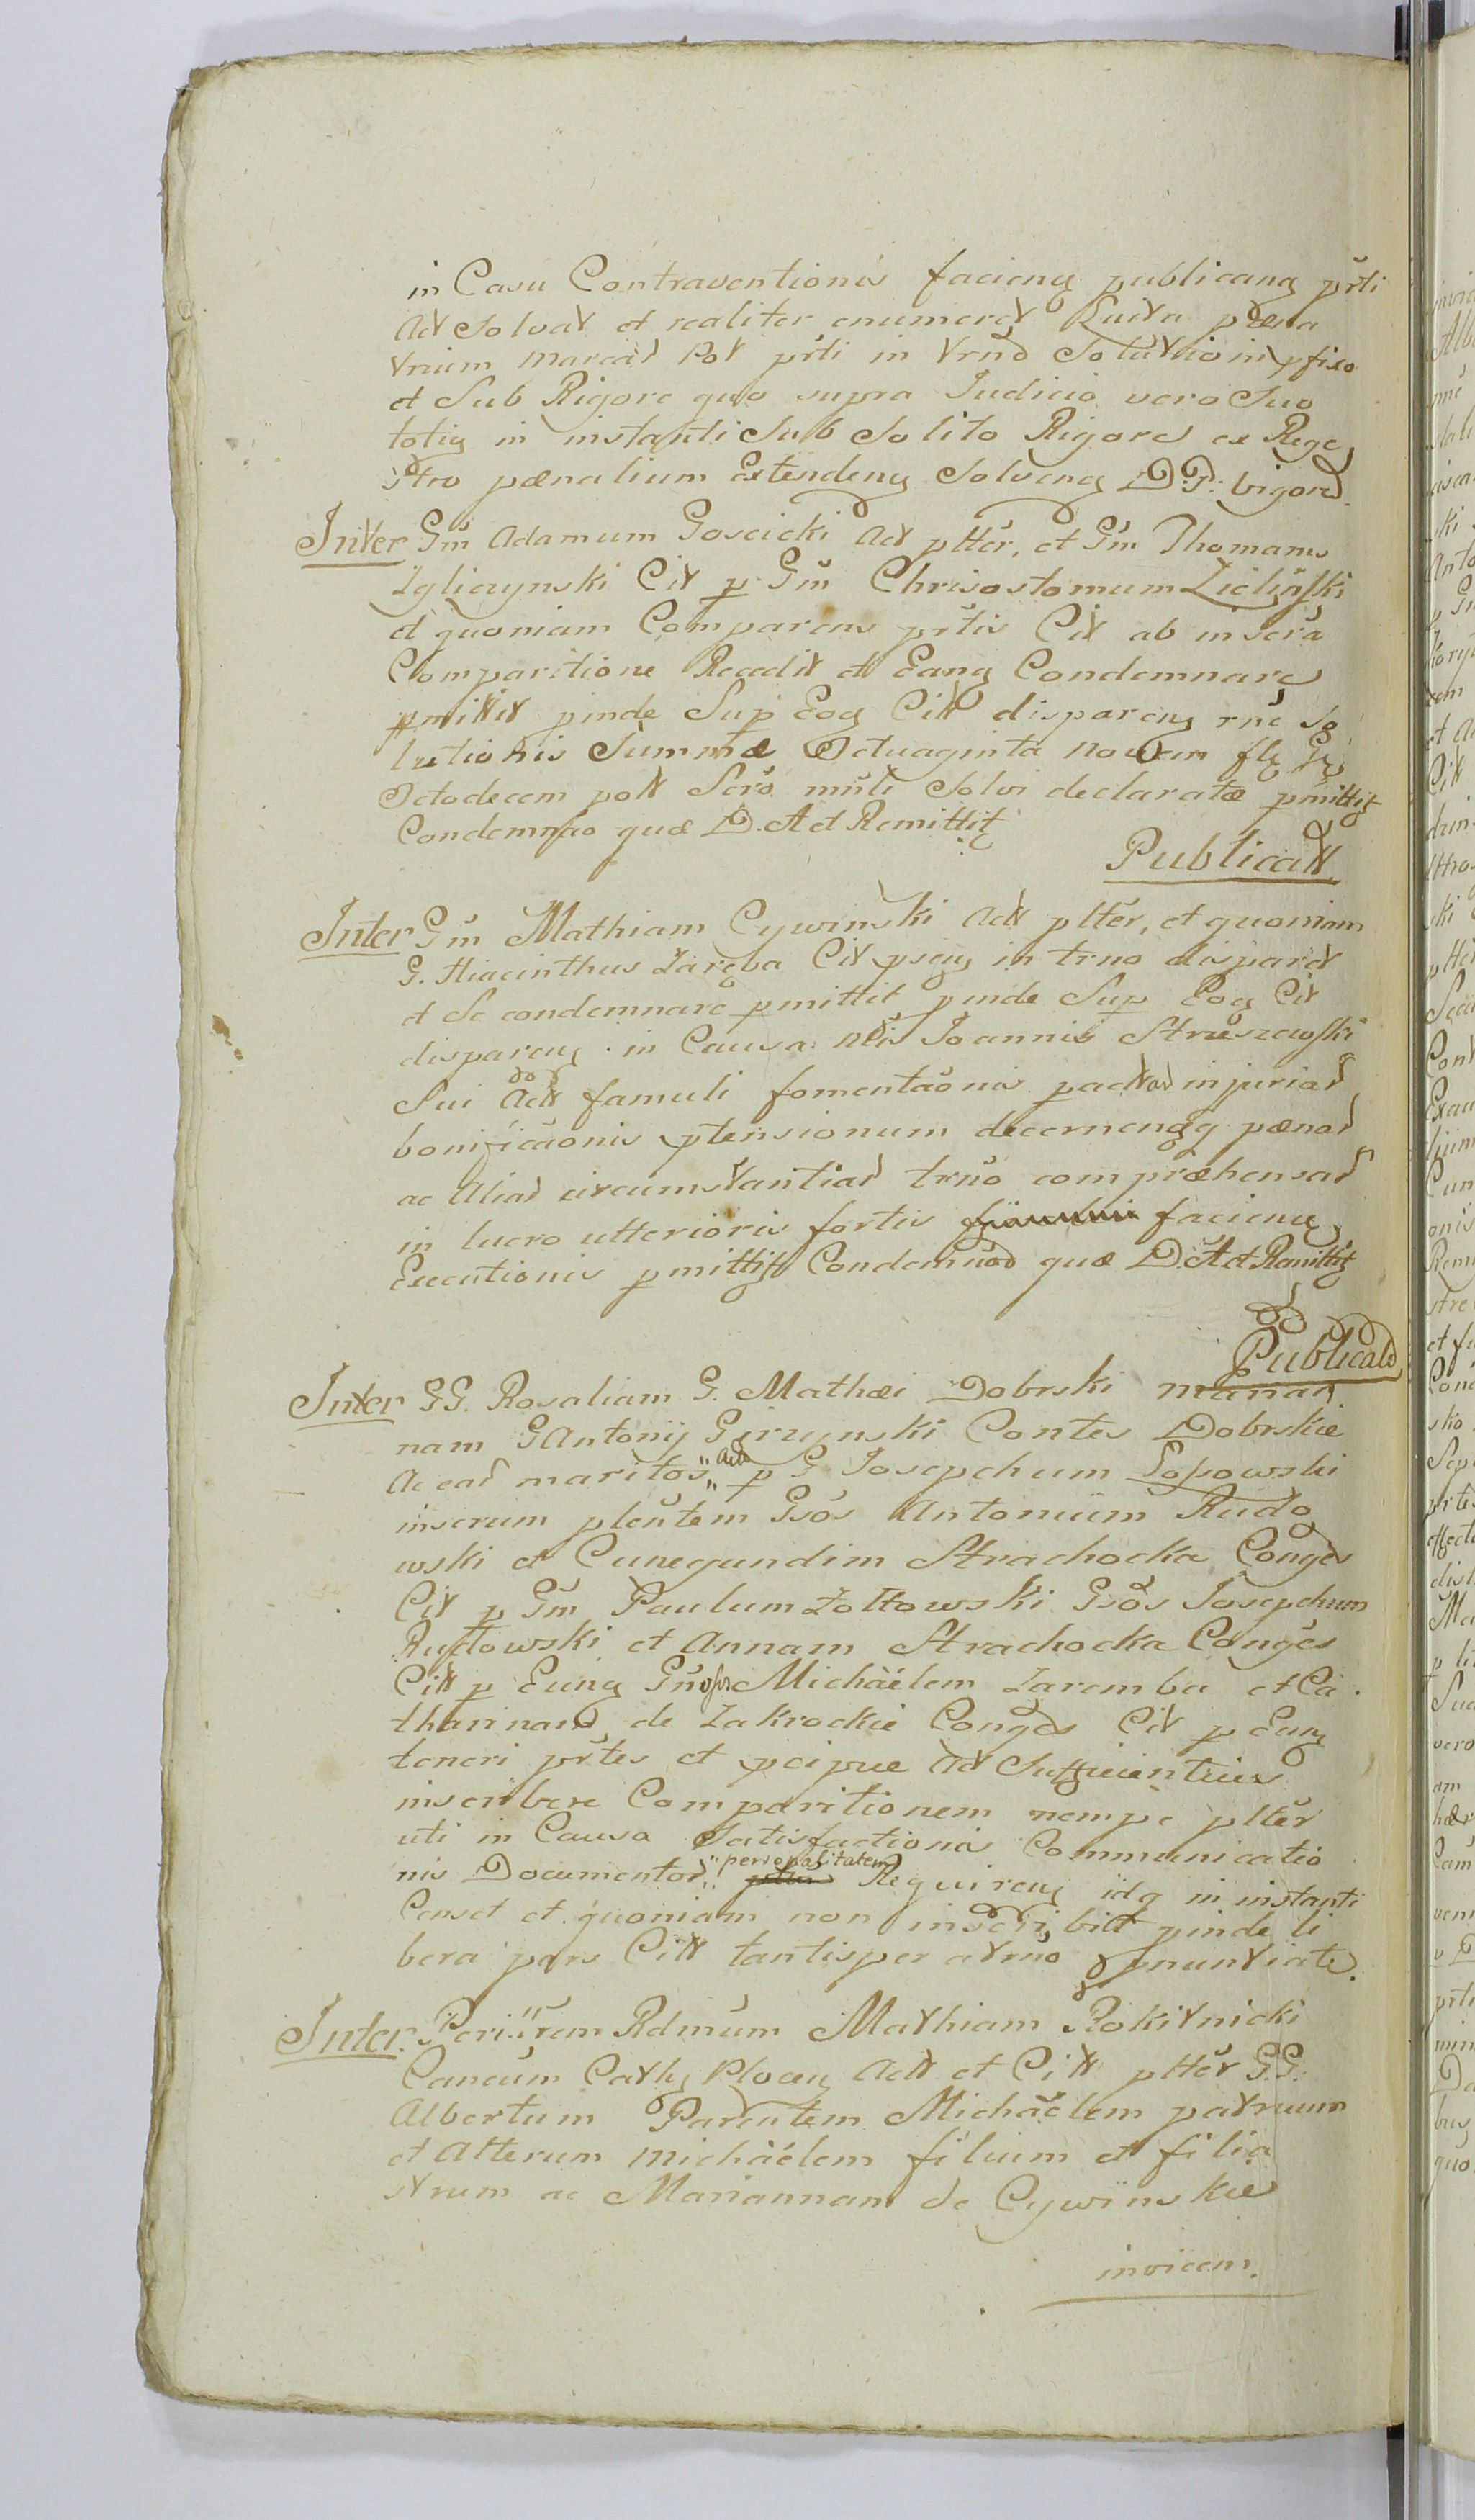 in Casu Contraventionis facieng publicang prti
Act Solvat et realiter enumeret Luita pæna
trium marcar Pol prti in trno Solutioni pfixo
et Sub Rigore quo supra Judicio vero Suo
totig in instanti Sub Solito Rigore ex Rege
stro pænalium Extendeng Solveng D. P: vigore
Inter Gm Adamum Goscicki Act plter, et Gm Thomam
Igliczynski Cit p Gm Chrisostomum Zielinski
et quoniam Comparens prtis Cit ab inscra
Comparitione Recedit et Eang Condemnare
pmittit pinde Sup Eog Citt dispareng rne So
lutionis Summæ Octuaginta novem fl
Octodecem polt Scro muli Solvi declaratæ pmittit
Condemnao quæ D. Act Remittit
Publicatt
Inter Gm Mathiam Cywinski Act plter, et quoniam
G. Hiacinthus Zaręba Cit pseng in trno disparet
et Se condemnare pmittit pinde Sup Eog Cit
dispareng in Causa Joannis Struszewski
Sui Act famuli fomentaonis pactrar injuriar
bonificaonis ptensionum decernendg pænar
ac aliar circumstantiar trno compræhensar
in lucro ulterioris fortis facieng
Executionis pmittit Condemnao quæ D. Act Remittit
Publicatt
Inter GG. Rosaliam G. Mathæi Dobrski
nam G Antonij Girzynski Contes Dobrskie
Ac ear maritos " Act " p G Josephum Łossowski
inscrum plentem Gsos Antonium Rudo
wski et Cunegundim Strachocka Conges
Cit p Gm Paulum Zołtowski Gsos Josephum
et Annam Strachocka Conges
Citt p Eung Michàélem Zaremba et Ca
tharinam de Zakrockie Conges Cit p Eung
teneri prtes et pcipue Act Sufficientius
inscribere Comparitionem nempe plter
uti in Causa Satisfactionis Communicatio
nis Documentor " personalitatem Requireng idq in instanti
Censet et quoniam non inscribit pinde li
bera pars Citt tantisper a trno pnuntiate.
Inter. Rdmum Mathiam Rokitnicki
Cancum Cathg Ploceg Act et Citt plter GG.
Albertum Parentem Michàélem patruum
et Alterum Michàélem filium et filia
strum ac Mariannam de Cywinskie
invicem.